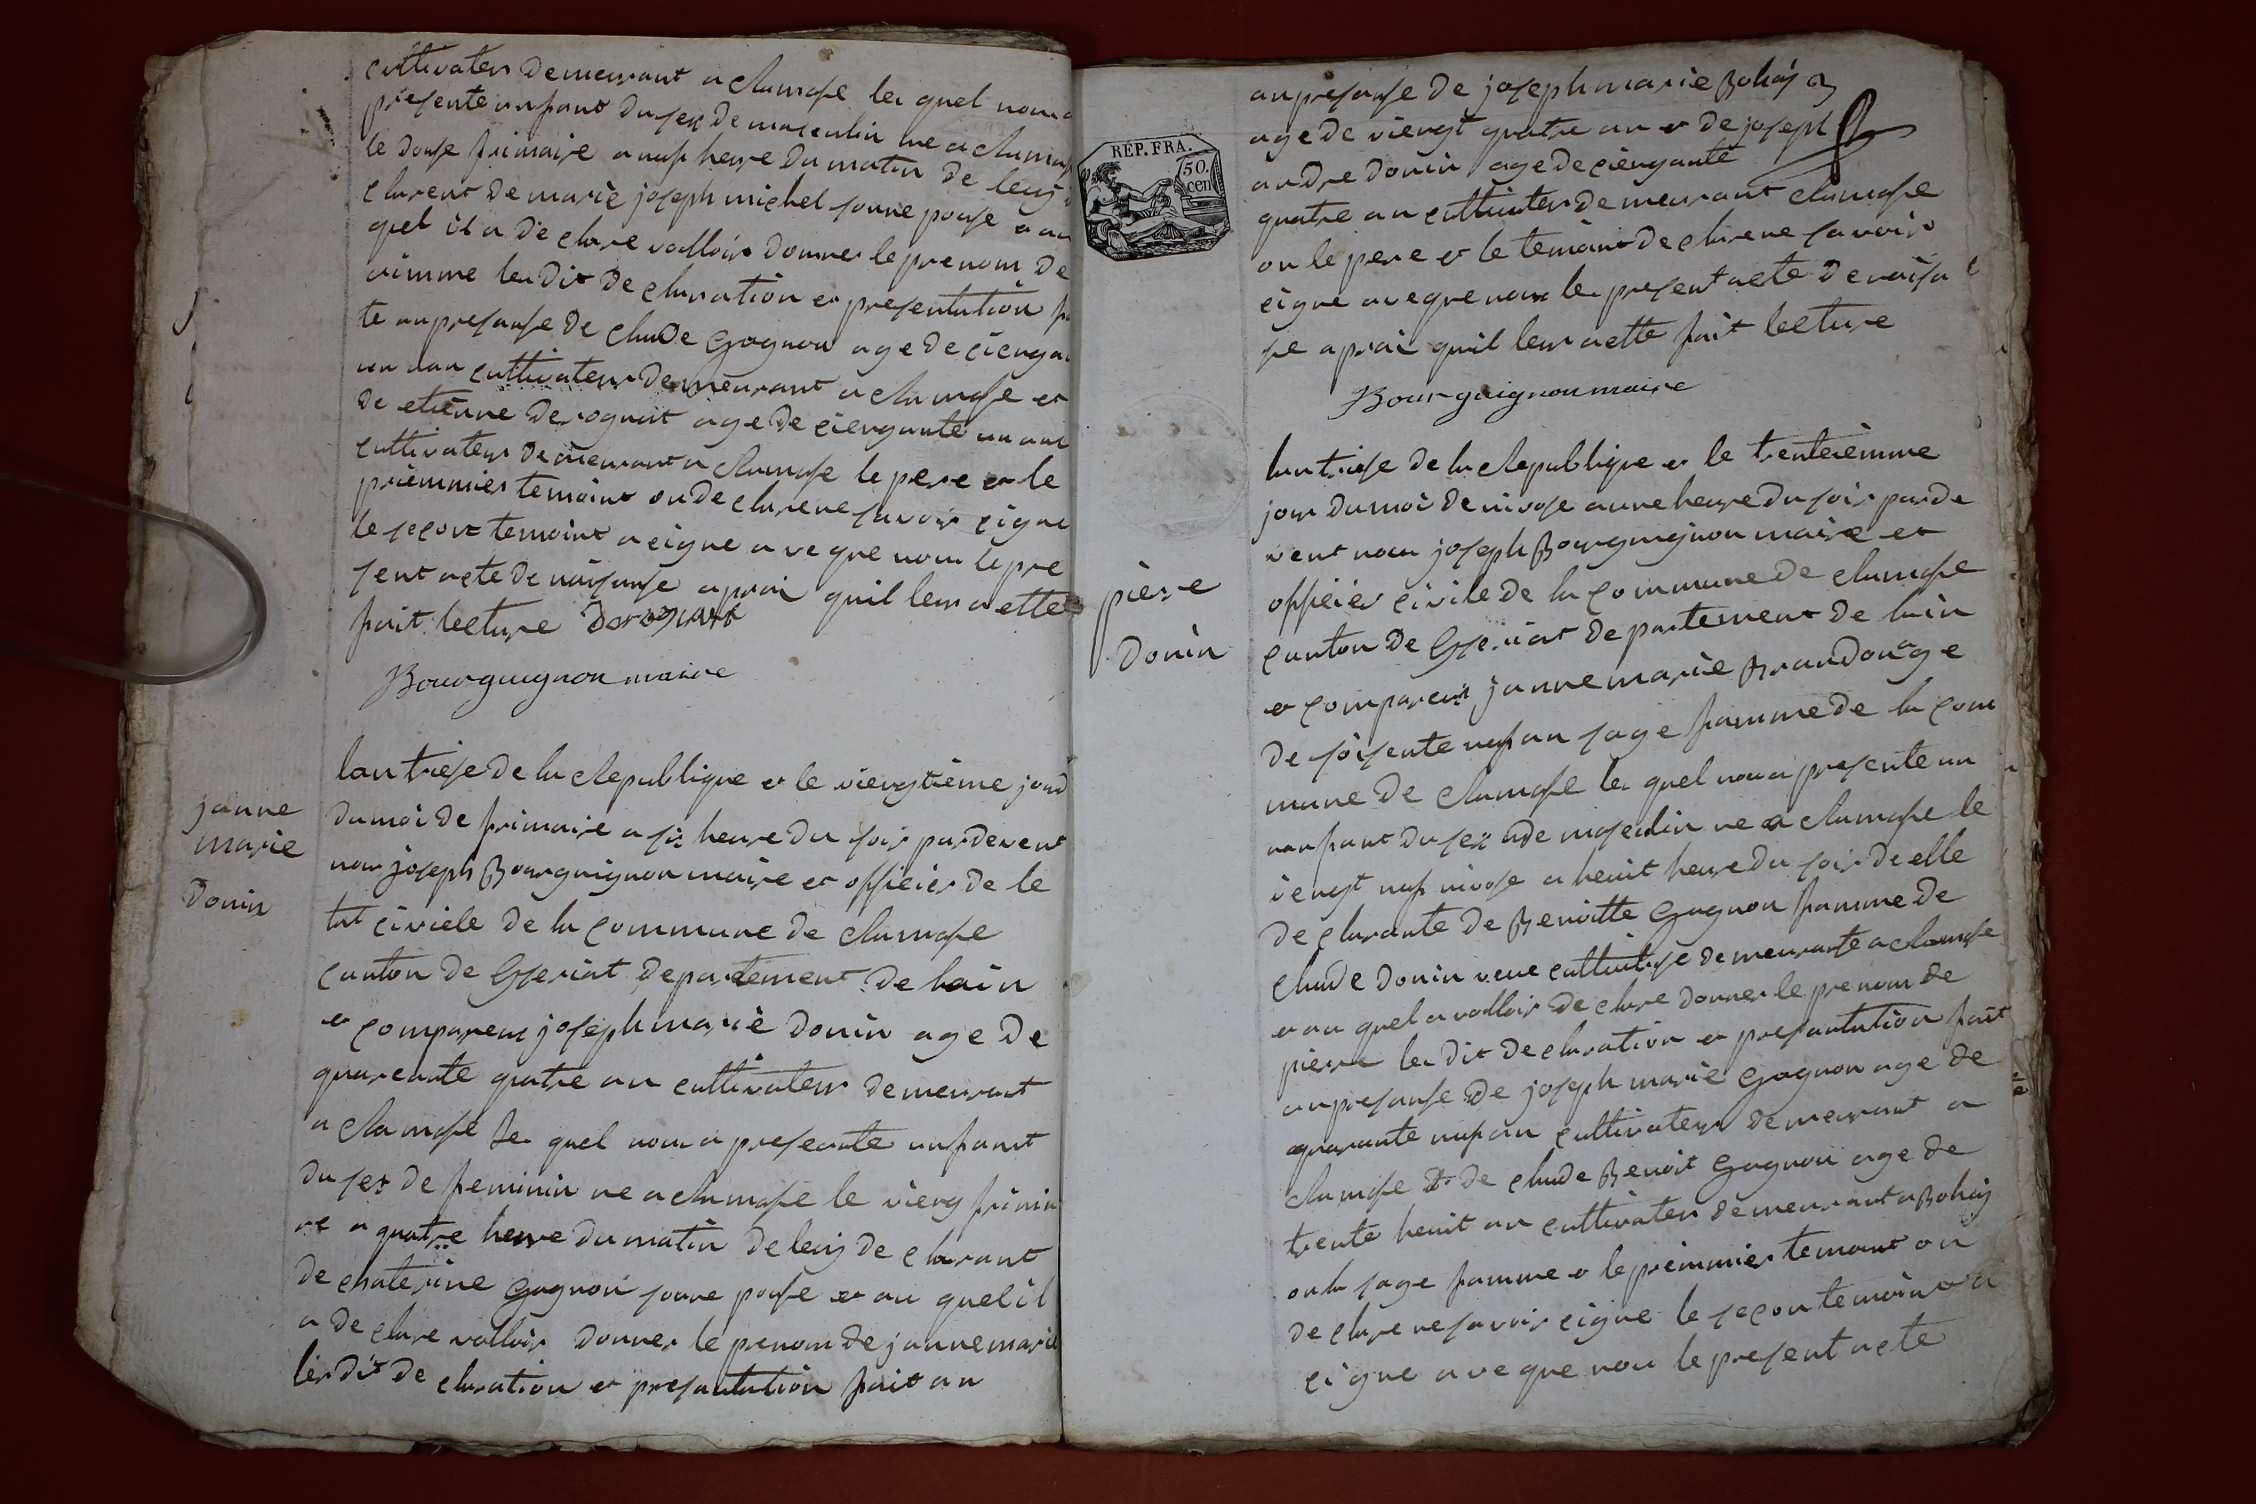 cultivateur demeurant a Clamose le quel nou a
presente anfant du sex de masculin ne a Clamose
le douse frimaire a nuf heure du matin de luij de
clarent de marie joseph michel sonne pouse a au
quel il a de clare volloir donner le prenom de
le dit de claration et presentation f
te anpresanse de claude gagnon age de ciengan
un dan cultivateur demeurant a Clamose et
de etienne derognat age de ciengante un ant
cultivateur demeurant a Clamose le pere et le
priemmier temoint on de clare ne savoir cigne
le secont temoint a cigne a veque nou le pre
sent acte de naisanse aprai quil leur a ette
fait lecture derognat
Bourguignon maire
janne
marie
Donin
lan triese de la Republique et le viengtième jour
du moi de frimaire a si heure du soir pardevent
nou joseph Bourguignon maire et offisier de le
tat civiele de la commune de Clamose
canton de Cyseriat departement de lain
et comparens joseph marie donin age de
quareante quatre an cultivateur demeurant
a Clamose le quel nou a preseante anfant
du sex de feminin ne a Clamose le vieng frimai
re a quatre heure du matin de luij de clarant
de chaterine gagnon sonne pouse et au quel il
a de clare volloir donner le prenom de janne marie
le dit de claration et presantation fait an
RÉP. FRA.
50.
cen
anpresanse de joseph marie Bohaj
age de viengt quatre an et de joseph
andre donin age de ciengante
quatre an cultivateur demeurant Clamose
on le pere et le temoint de clare ne savoir
cigne aveque nou le present acte de naisa
se aprai quil leur a ette fait lecture
Bourguignon maire
pière
Donin
lan triese de la Republique et le trenteièmme
jour du moi de nivose a une heure du soir parde
vent nou joseph Bourguignon maire et
offisier civile de la commune de Clamose
canton de Cyseriat departement de lain
et comparens janne marie Brandon age
de soisente nuf an sage famme de la com
mune de Clamose le quel nou a presente un
anfant du sex de masculin ne a Clamose le
viengt nuf nivose a heuit heure du soir de elle
de clarante de Benoitte gagnon famme de
claude donin veve cultivatrise demeurante a Clamose
et au quel a volloir de clare donner le prenom de
pierre le dit declaration et presantation fait
anpresanse de joseph marie gagnon age de
quarante nuf an cultivateur demeurant a
Clamose et de claude Benoit gagnon age de
trente heuit an cultivateur demeurant a Bohaj
on la sage famme et le priemmier temoint on
de clare ne savoir cigne le secon temoint a
cigne a veque nou le present acte